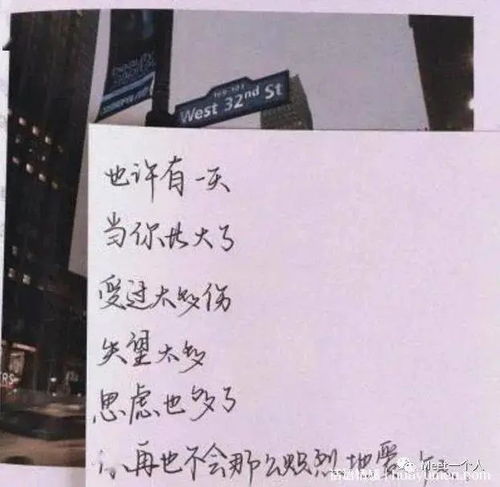 beauty
West 32nd St
也许有一天
当你长大了
受过太多伤
失望太多
思虑也多了
再也不会那么炽烈地爱